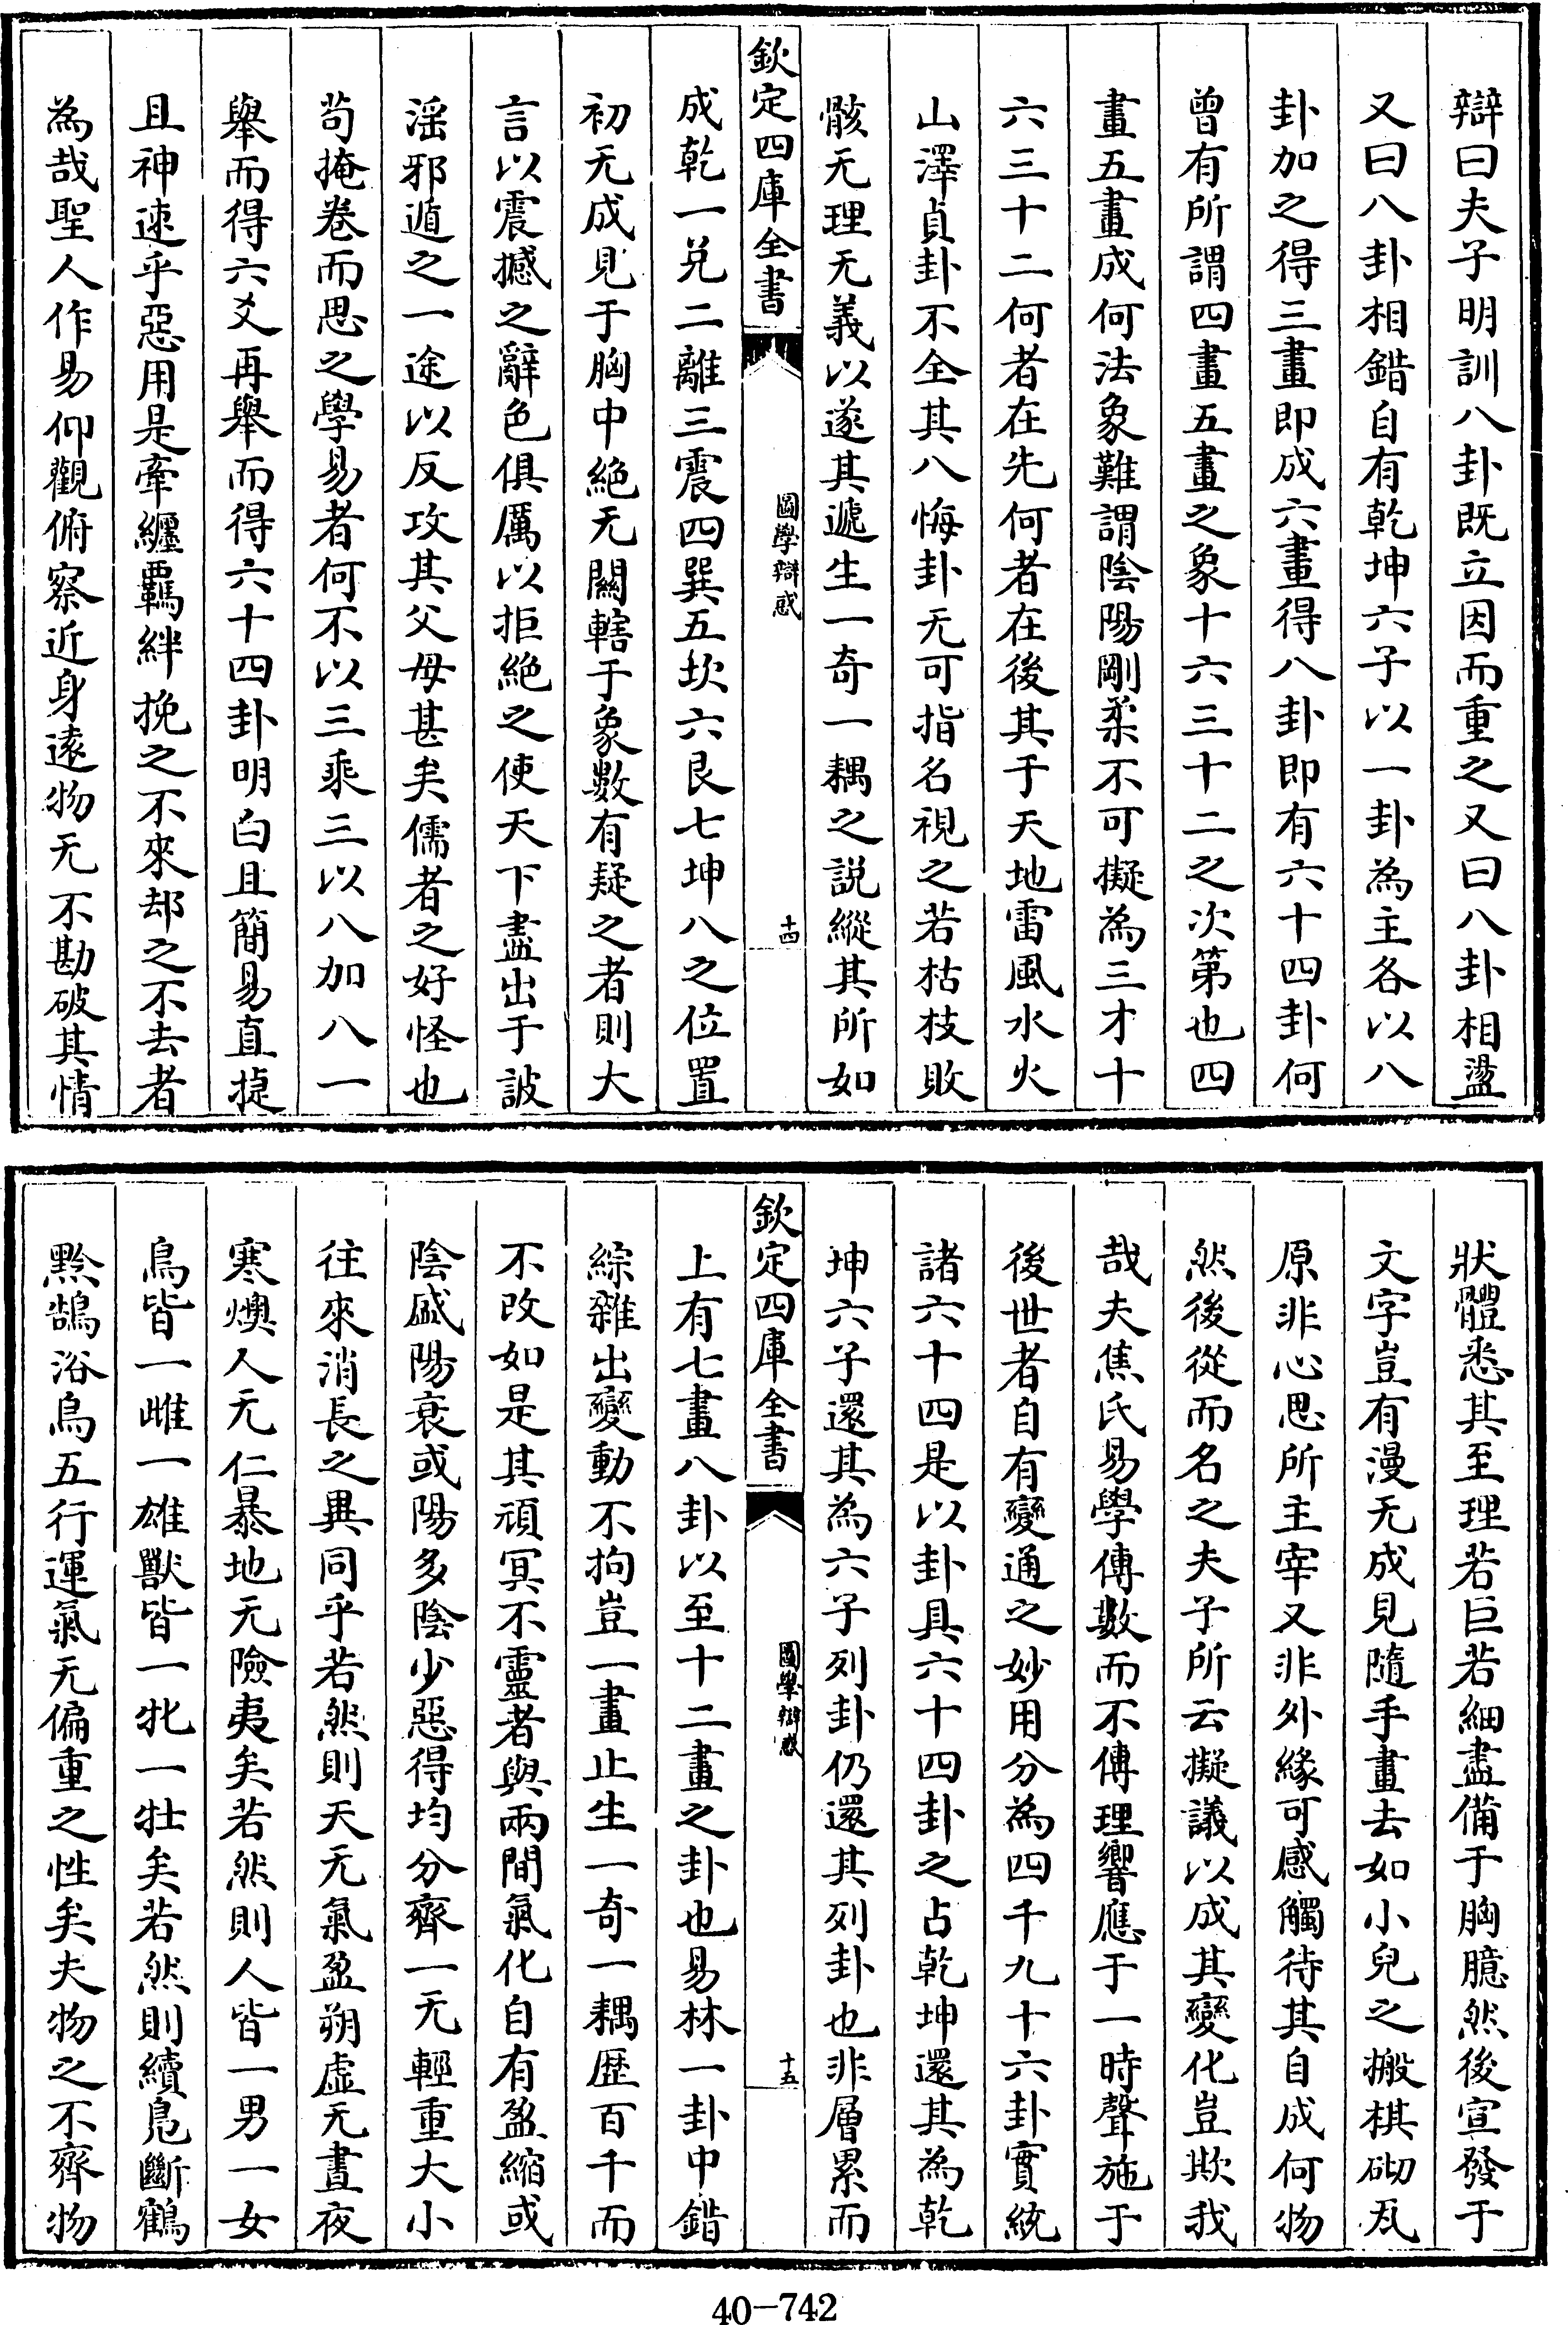 辯曰夫子明訓八卦既立因而重之又曰八卦相盪
又曰八卦相錯自有乾坤六子以一卦為主各以八
卦加之得三畫即成六畫得八卦即有六十四卦何
曾有所謂四畫五畫之象十六三十二之次第也四
畫五畫成何法象難謂陰陽剛柔不可擬為三才十
六三十二何者在先何者在後其于天地雷風水火
山澤貞卦不全其八悔卦无可指名視之若枯枝敗
骸无理无義以遂其遞生一奇一耦之説縱其所如
欽定四庫全書
圖學辯惑
十四
成乾一兑二離三震四巽五坎六艮七坤八之位置
初无成見于胸中絶无關轄于象數有疑之者則大
言以震撼之辭色俱厲以拒絶之使天下盡出于詖
淫邪遁之一途以反攻其父母甚矣儒者之好怪也
苟掩卷而思之學易者何不以三乘三以八加八一
舉而得六爻再舉而得六十四卦明白且簡易直捷
且神速乎惡用是牽纏羈絆挽之不來却之不去者
為哉聖人作易仰觀俯察近身逺物无不勘破其情
狀體悉其至理若巨若細盡備于胸臆然後宣發于
文字豈有漫无成見隨手畫去如小兒之搬棋砌瓦
原非心思所主宰又非外緣可感觸待其自成何物
然後從而名之夫子所云擬議以成其變化豈欺我
哉夫焦氏易學傳數而不傳理響應于一時聲施于
後世者自有變通之妙用分為四千九十六卦實統
諸六十四是以卦具六十四卦之占乾坤還其為乾
坤六子還其為六子列卦仍還其列卦也非層累而
欽定四庫全書
圖學辯惑
十五
上有七畫八卦以至十二畫之卦也易林一卦中錯
綜雜出變動不拘豈一畫止生一奇一耦歴百千而
不改如是其頑冥不靈者與兩間氣化自有盈縮或
陰盛陽衰或陽多陰少惡得均分齊一无輕重大小
往來消長之異同乎若然則天无氣盈朔虛无晝夜
寒燠人无仁暴地无險夷矣若然則人皆一男一女
鳥皆一雌一雄獸皆一牝一牡矣若然則續鳧斷鶴
黔鵠浴烏五行運氣无偏重之性矣夫物之不齊物
40-742